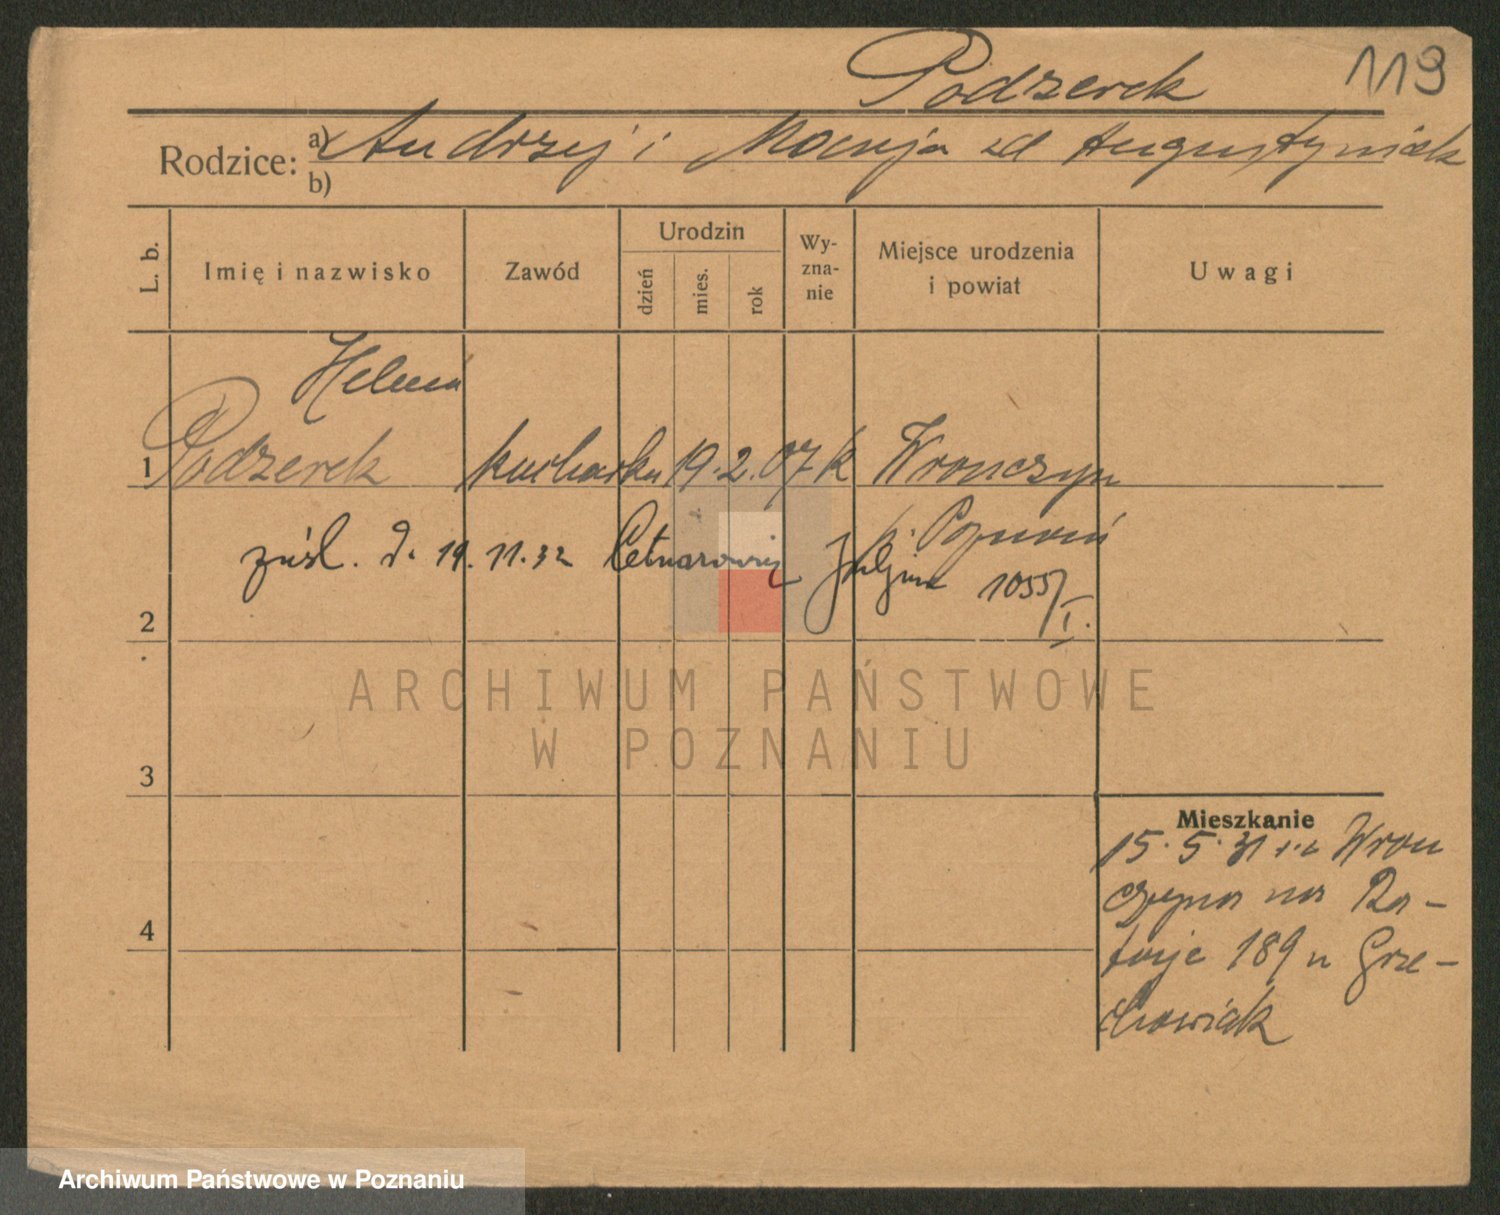 Podzerek 119
Rodzice: a) Andrzej i Marya zd Augustyniak
b)
L. b. Imię i nazwisko Zawód Urodzin dzień mies. rok Wy-zna-nie Miejsce urodzenia i powiat Uwagi
Helena
1 Podzerek kucharka 19. 2. 07 k Wronczyn
p. Poznań
zaśl. d. 19.11.32 1055/I.
2
3
4
Mieszkanie
15. 5. 31 z Wron
czyna na Ra-
taje 189 u Grze-
chowiak
ARCHIWUM PAŃSTWOWE
W POZNANIU
Archiwum Państwowe w Poznaniu